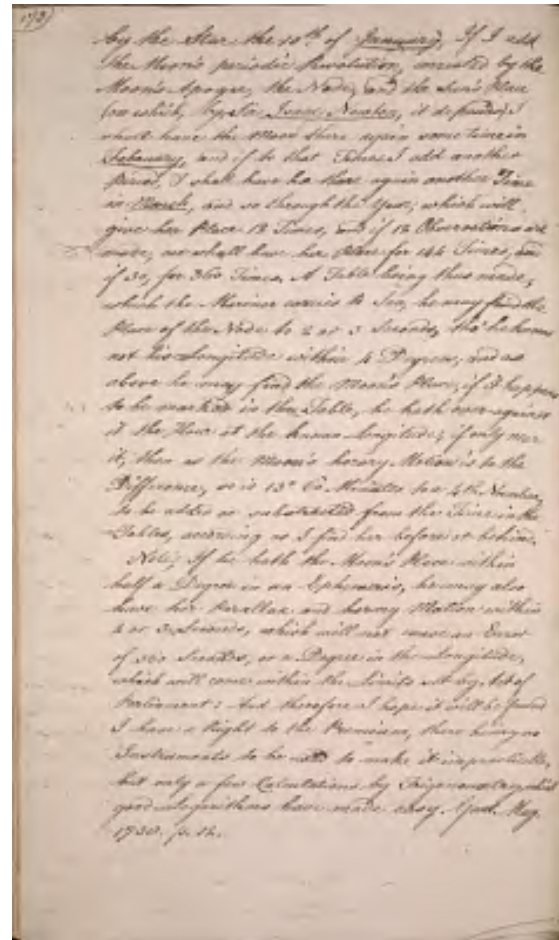 173)
by the Star the 10th of January, If I add
the Moon's periodic Revolution, corrected by the
Moon's Apogee, the Node, and the Sun's Place
(on which, by Sir Isaac Newton, it depends) I
shall have the Moon there again some time in
February, and if to that Time I add another
Period, I shall have her there again another Time
in March, and so through the Year; which will
give her Place 12 Times, and if 12 Observations are
made, we shall have her Place for 144 Times, and
if 30, for 360 Times. A Table being thus made,
which the Mariner carries to Sea, he may find the
Place of the Node to 2 or 3 Seconds, tho' he knows
not his Longitude within 4 Degrees, and as
above he may find the Moon's Place, if it happens
to be marked in the Table, he hath over-against
it the Hour at the known Longitude; if only near
it, then as the Moon's horary Motion is to the
Difference, so is 60 Minutes to a 4th Number,
to be added or substracted from the Time in the
Tables, according as I find her before or behind.
Note, If he hath the Moon's Place within
half a Degree in an Ephemeris, he may also
have her Parallax and horary Motion within
2 or 3 Seconds, which will not cause an Error
of 360 Seconds, or a Degree in the Longitude,
which will come within the Limits set by Act of
Parliament: And therefore I hope it will be found
I have a Right to the Premium, there being no
Instruments to be used to make it impracticable,
but only a few Calculations by Trigonometry which
good Logarithms have made easy. Gent. Mag.
1730. p.